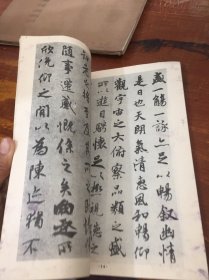 盛一觴一詠亦足以暢敘幽情
是日也天朗氣清惠風和暢仰
觀宇宙之大俯察品類之盛
所以遊目騁懷足以極視聽之
隨事遷感慨係之矣向之所
欣俛仰之間以為陳迹猶不